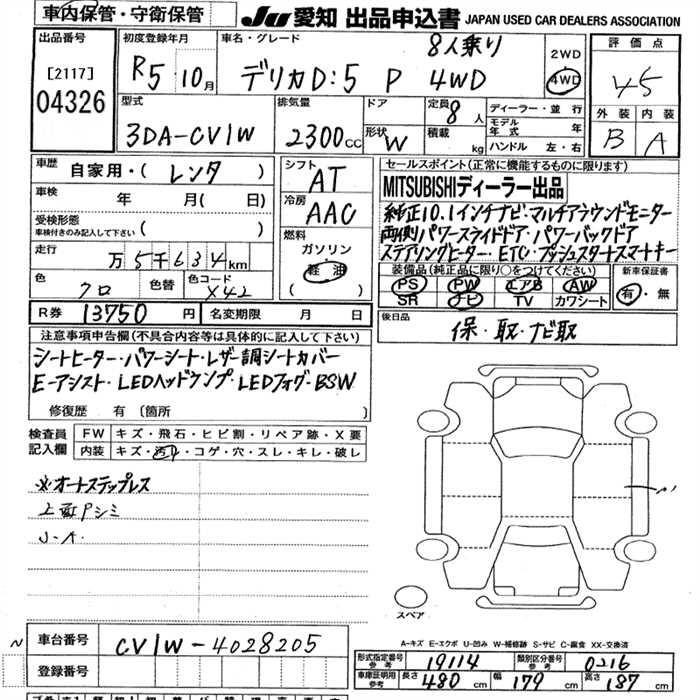 車内保管・守衛保管
JU 愛知 出品申込書 JAPAN USED CAR DEALERS ASSOCIATION
出品番号
[2117]
04326
初度登録年月
R5 10月
車名・グレード
8人乗り
デリカD:5 P 4WD
2WD
4WD
評価点
4.5
外装 内装
B A
型式
3DA-CV1W
排気量
2300cc
ドア
形状 W
定員 8人
積載 kg
ディーラー・並行
モデル年式 年
ハンドル 左・右
車歴 自家用・( レンタ )
車検 年 月( 日)
受検形態
車検付きのみ記入して下さい ( )
走行 万5千634km
色 クロ
色替
色コード X42
シフト
AT
冷房
AAC
燃料
ガソリン・
軽油
セールスポイント(正常に機能するものに限ります)
MITSUBISHIディーラー出品
純正10.1インチナビ・マルチアラウンドモニター
両側パワースライドドア・パワーバックドア
ステアリングヒーター・ETC・プッシュスタートスマートキー
装備品(純正品に限り○をつけてください)
PS PW エアB AW
SR ナビ TV カワシート
新車保証書
有・無
R券 13750円
名変期限 月 日
後日品
保・取・ナビ取
注意事項申告欄(不具合内容等は具体的に記入して下さい)
シートヒーター・パワーシート・レザー調シートカバー
E-アシスト・LEDヘッドランプ・LEDフォグ・BSW
修復歴 有 〔箇所 〕
検査員
記入欄
FW キズ・飛石・ヒビ割・リペア跡・X要
内装 キズ・汚れ・コゲ・穴・スレ・キレ・破レ
※オートステップレス
シミ
スペア
A-キズ E-エクボ U-凹み W-補修跡 S-サビ C-腐食 XX-交換済
車台番号 CV1W-4028205
登録番号
形式指定番号 参考 19114
類別区分番号 参考 0216
車庫証明用 参考 長さ 480cm 幅 179cm 高さ 187cm